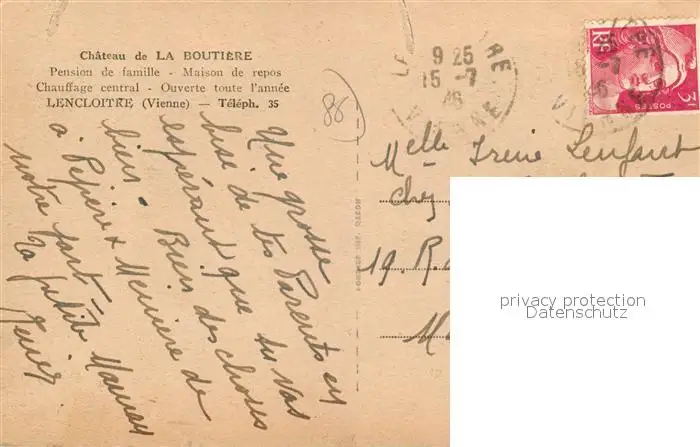 Château de LA BOUTIÈRE
Pension de famille - Maison de repos
Chauffage central - Ouverte toute l'année
LENCLOITRE (Vienne) — Téléph. 35
86
9 25
15 -7
46
VIENNE
RF
3F
POSTES
Une grosse
bise de tes Parents en
espérant que tu vas
bien. Bien des choses
à Pépère & Mémère de
notre part
Ta petite Maman
Melle Irène Lenfant
Chez
19. R
privacy protection
Datenschutz